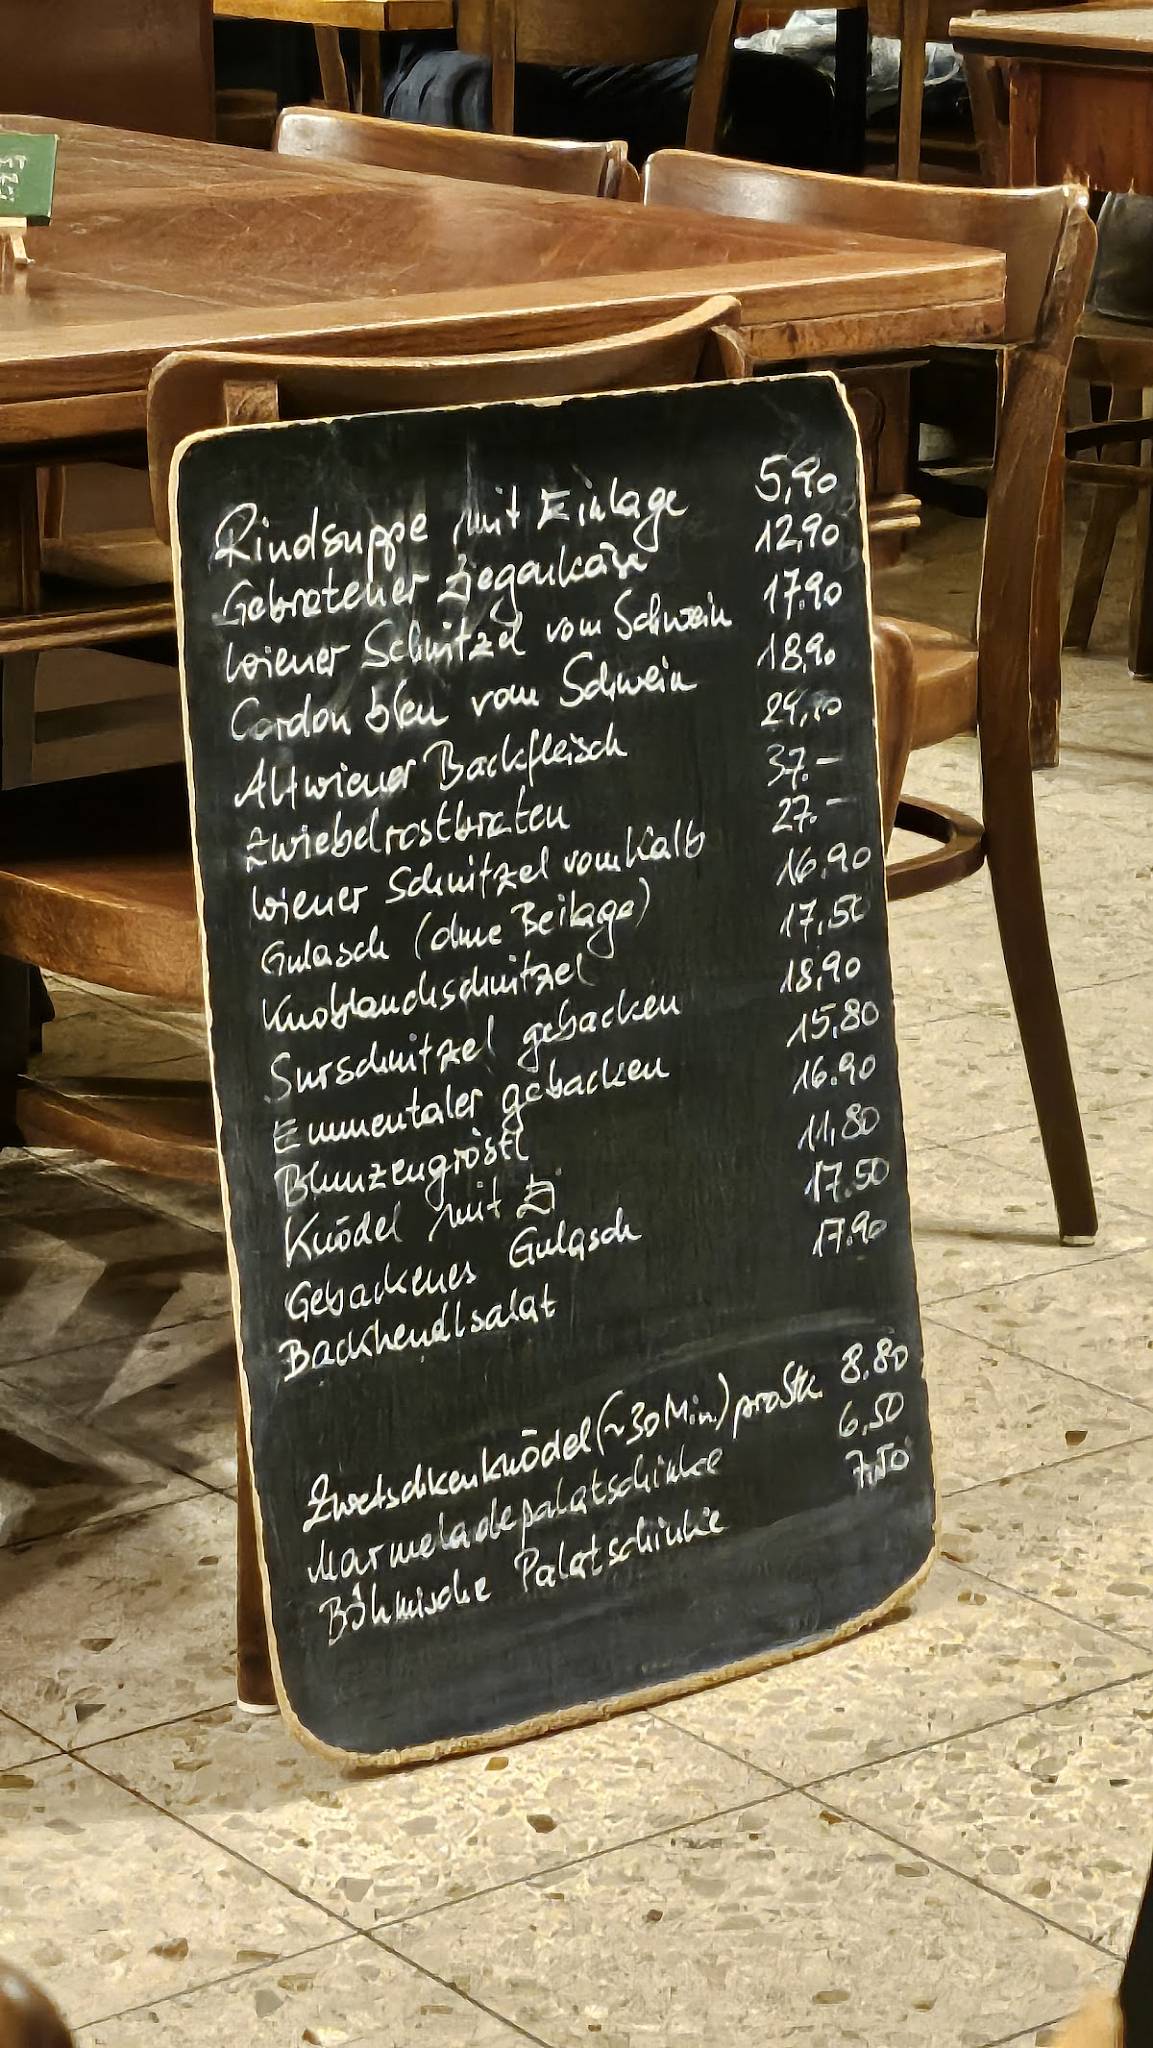 MT
N
Rindsuppe mit Einlage 5,90
Gebratener Ziegenkäse 12,90
Wiener Schnitzel vom Schwein 17.90
Cordon bleu vom Schwein 18,90
Altwiener Backfleisch
Zwiebelrostbraten 37.-
Wiener Schnitzel vom Kalb 27.-
Gulasch (ohne Beilage) 16.90
Knoblauchschnitzel 17,50
Surschnitzel gebacken 18,90
Emmentaler gebacken 15,80
Blunzengröstl 16.90
Knödel mit Ei 11,80
Gebackenes Gulasch 17.50
Backhendlsalat 17.90
Zwetschkenknödel (~30 Min.) pro Stk. 8.80
Marmeladepalatschinke 6,50
Böhmische Palatschinke